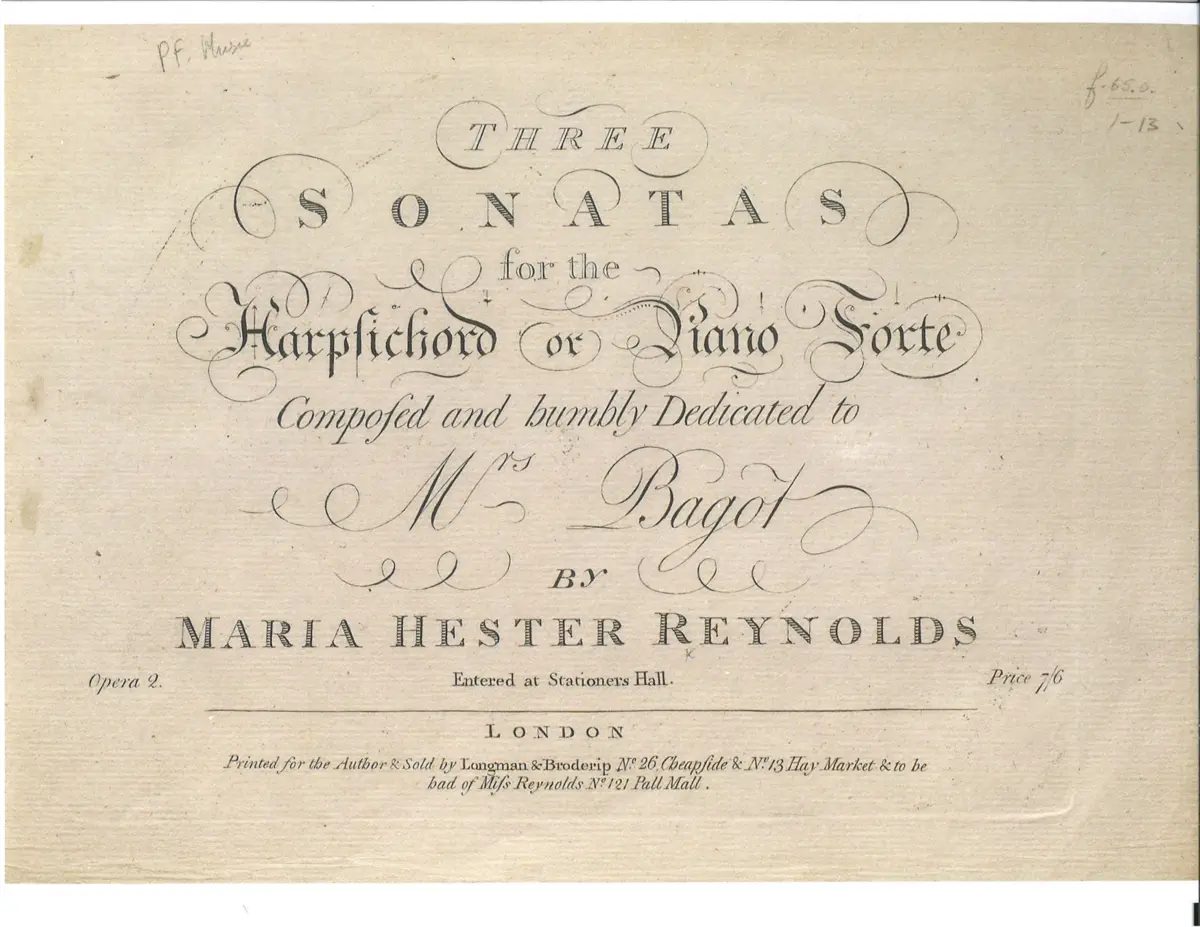 PF. Music
f. 65.o.
1-13
THREE
SONATAS
for the
Harpſichord or Piano Forte
Compoſed and humbly Dedicated to
Mrs Bagot
BY
MARIA HESTER REYNOLDS
Opera 2. Entered at Stationers Hall. Price 7/6
LONDON
Printed for the Author & Sold by Longman & Broderip No. 26 Cheapſide & No. 13 Hay Market & to be
had of Miſs Reynolds No. 121 Pall Mall.